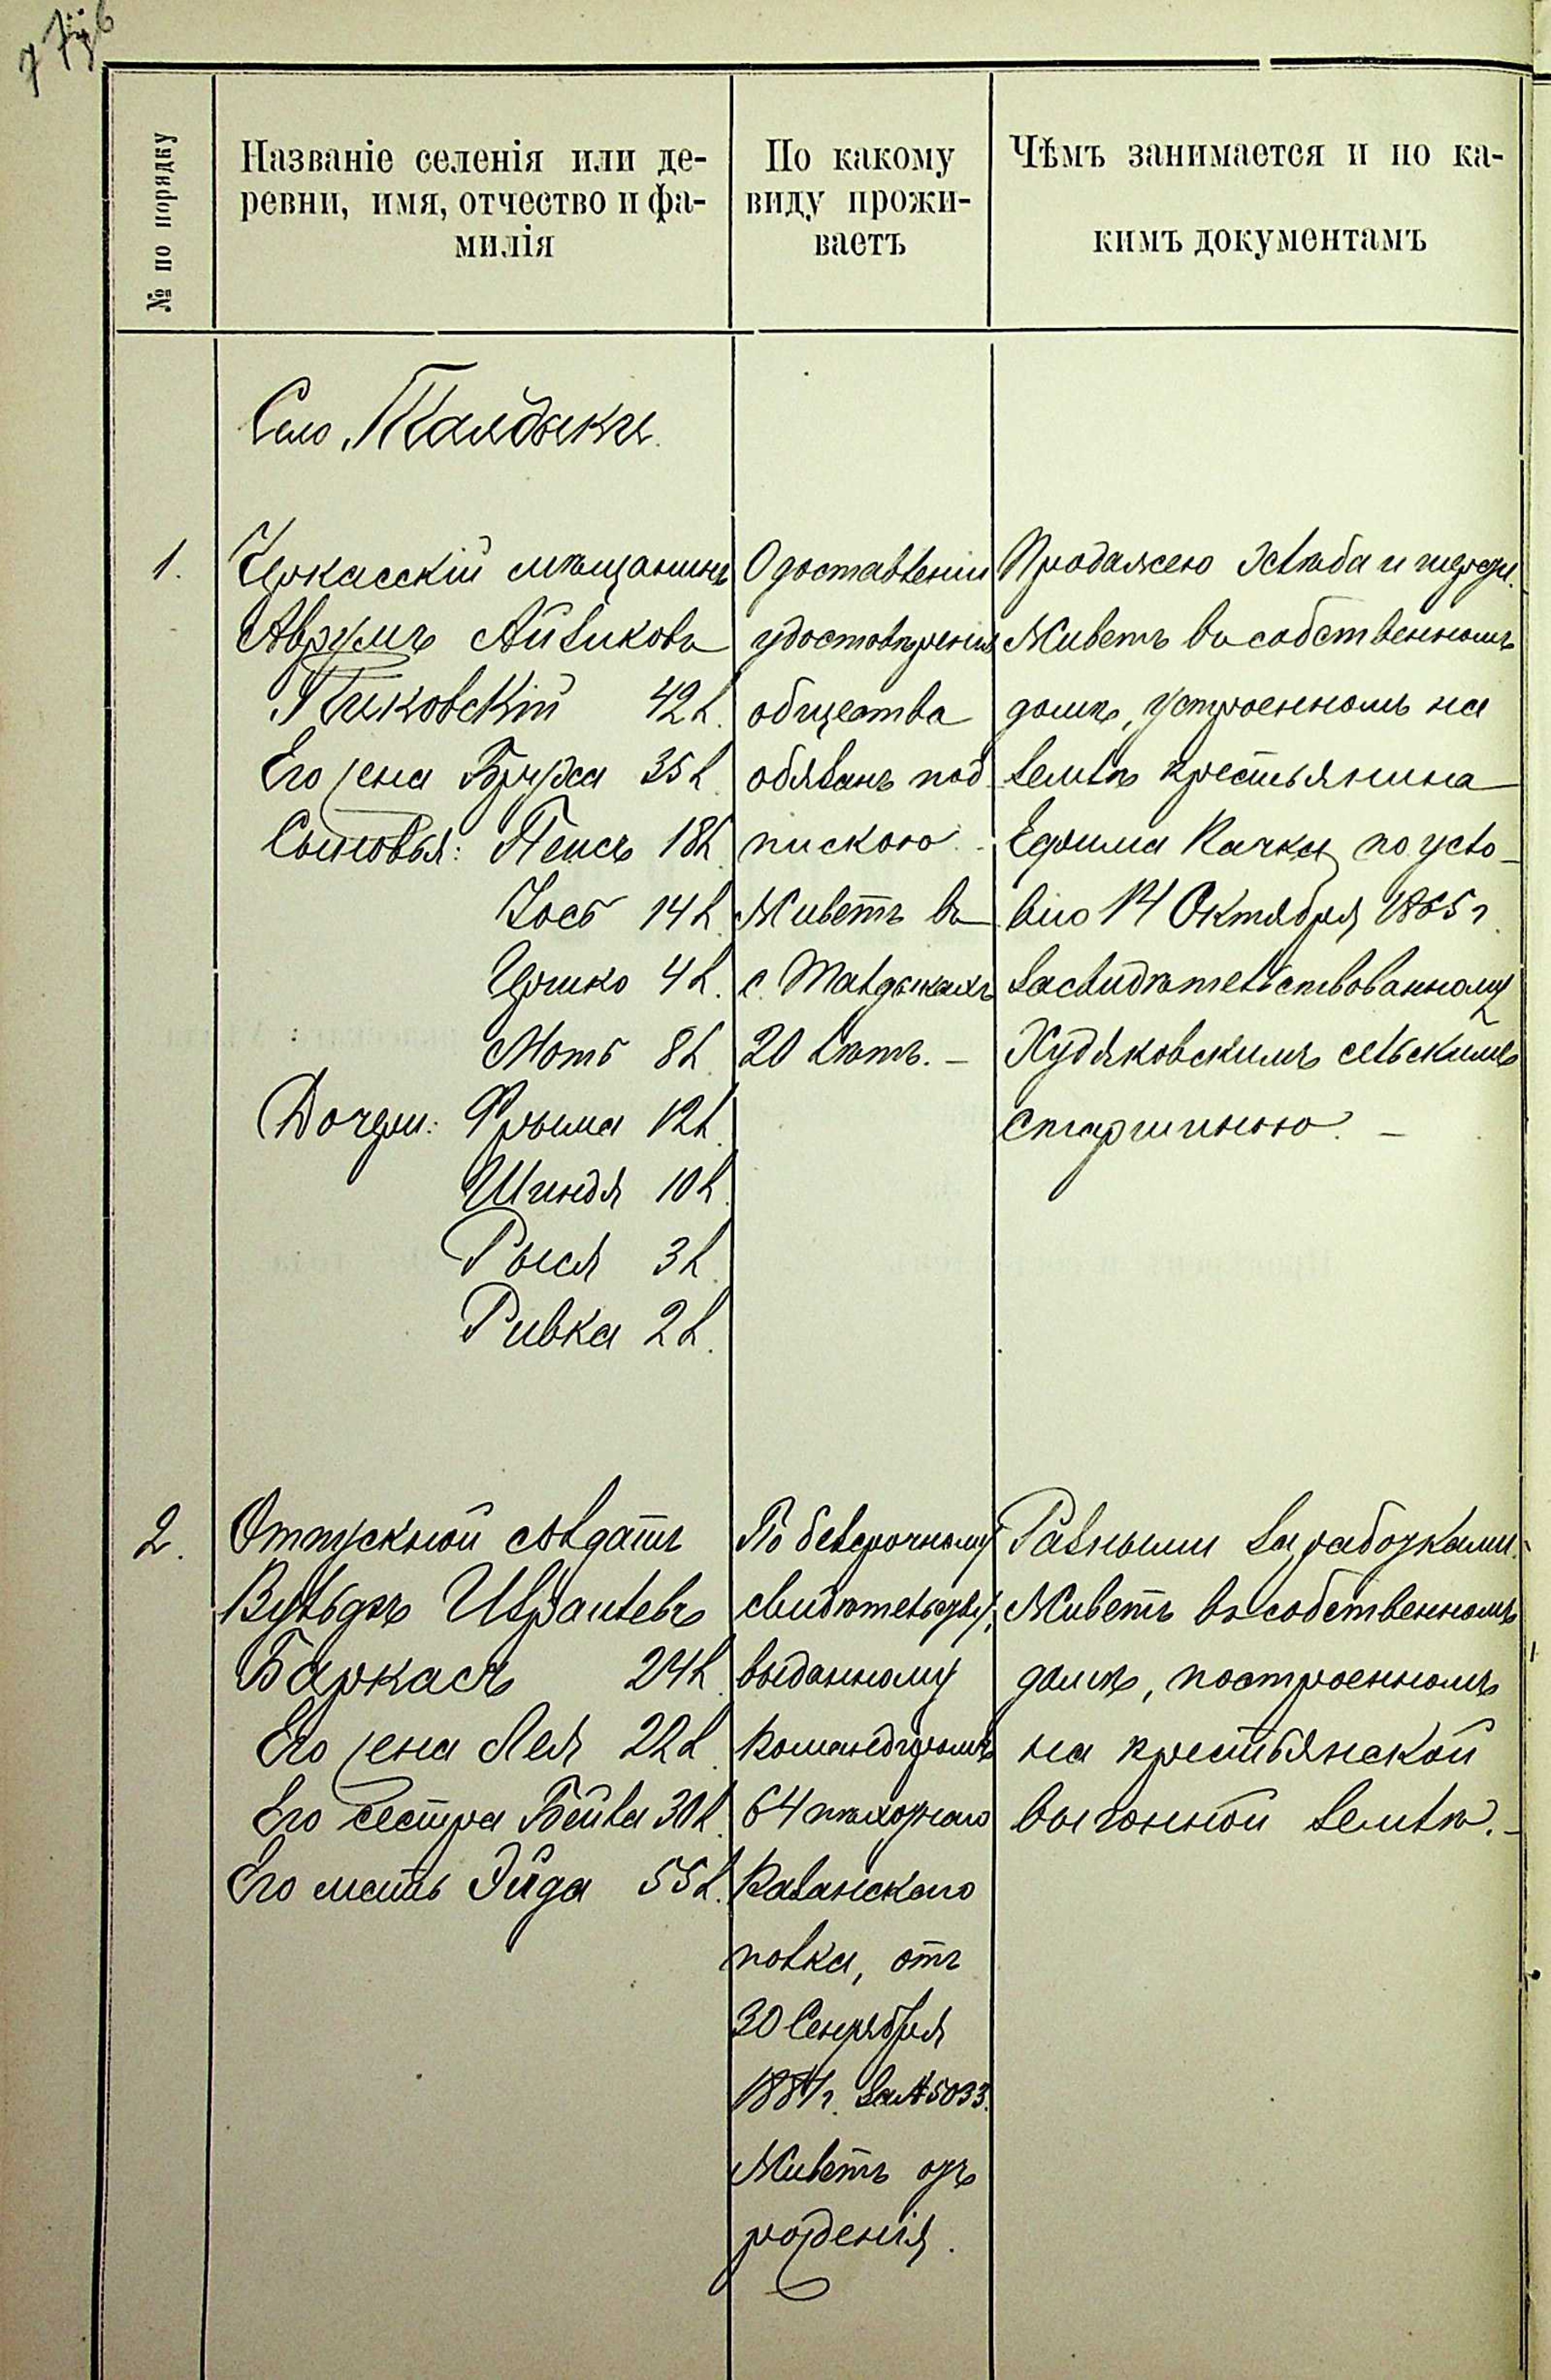 № по порядку
Названіе селенія или де-
ревни, имя, отчество и фа-
милія
По какому
виду прожи-
ваетъ
Чѣмъ занимается и по ка-
кимъ документамъ
Село Талдыки.
1.
Черкасскій мѣщанинъ
Аврумъ Айзиковъ
Пиковскій 42 л.
Его жена Бруха 35 л.
Сыновья: Пейсъ 18 л.
Іось 14 л.
Гершко 4 л.
Моть 8 л.
Дочери: Фрыма 12 л.
Шиндя 10 л.
Рыся 3 л.
Ривка 2 л.
О доставленіи
удостовѣренія
общества
обязанъ под-
пискою.
Живетъ въ
с. Талдыкахъ
20 лѣтъ. —
Продажею хлѣба и
Живетъ въ собственномъ
домѣ, устроенномъ на
землѣ крестьянина
Ефима Качки, по усло-
вію 14 Октября 1865 г.
засвидѣтельствованному
Худяковскимъ сельскимъ
старшиною. —
2.
Отпускной солдатъ
Вульфъ Израилевъ
Баркасъ 24 л.
Его жена Лея 22 л.
Его сестра Бейла 30 л.
Его мать Эйда 55 л.
По безсрочному
свидѣтельству,
выданному
Командиромъ
64 пѣхотнаго
Казанскаго
полка, отъ
30 Сентября
1881 г. за № 5033.
Живетъ отъ
рожденія.
Разными заработками.
Живетъ въ собственномъ
домѣ, построенномъ
на крестьянской
выгонной землѣ. —